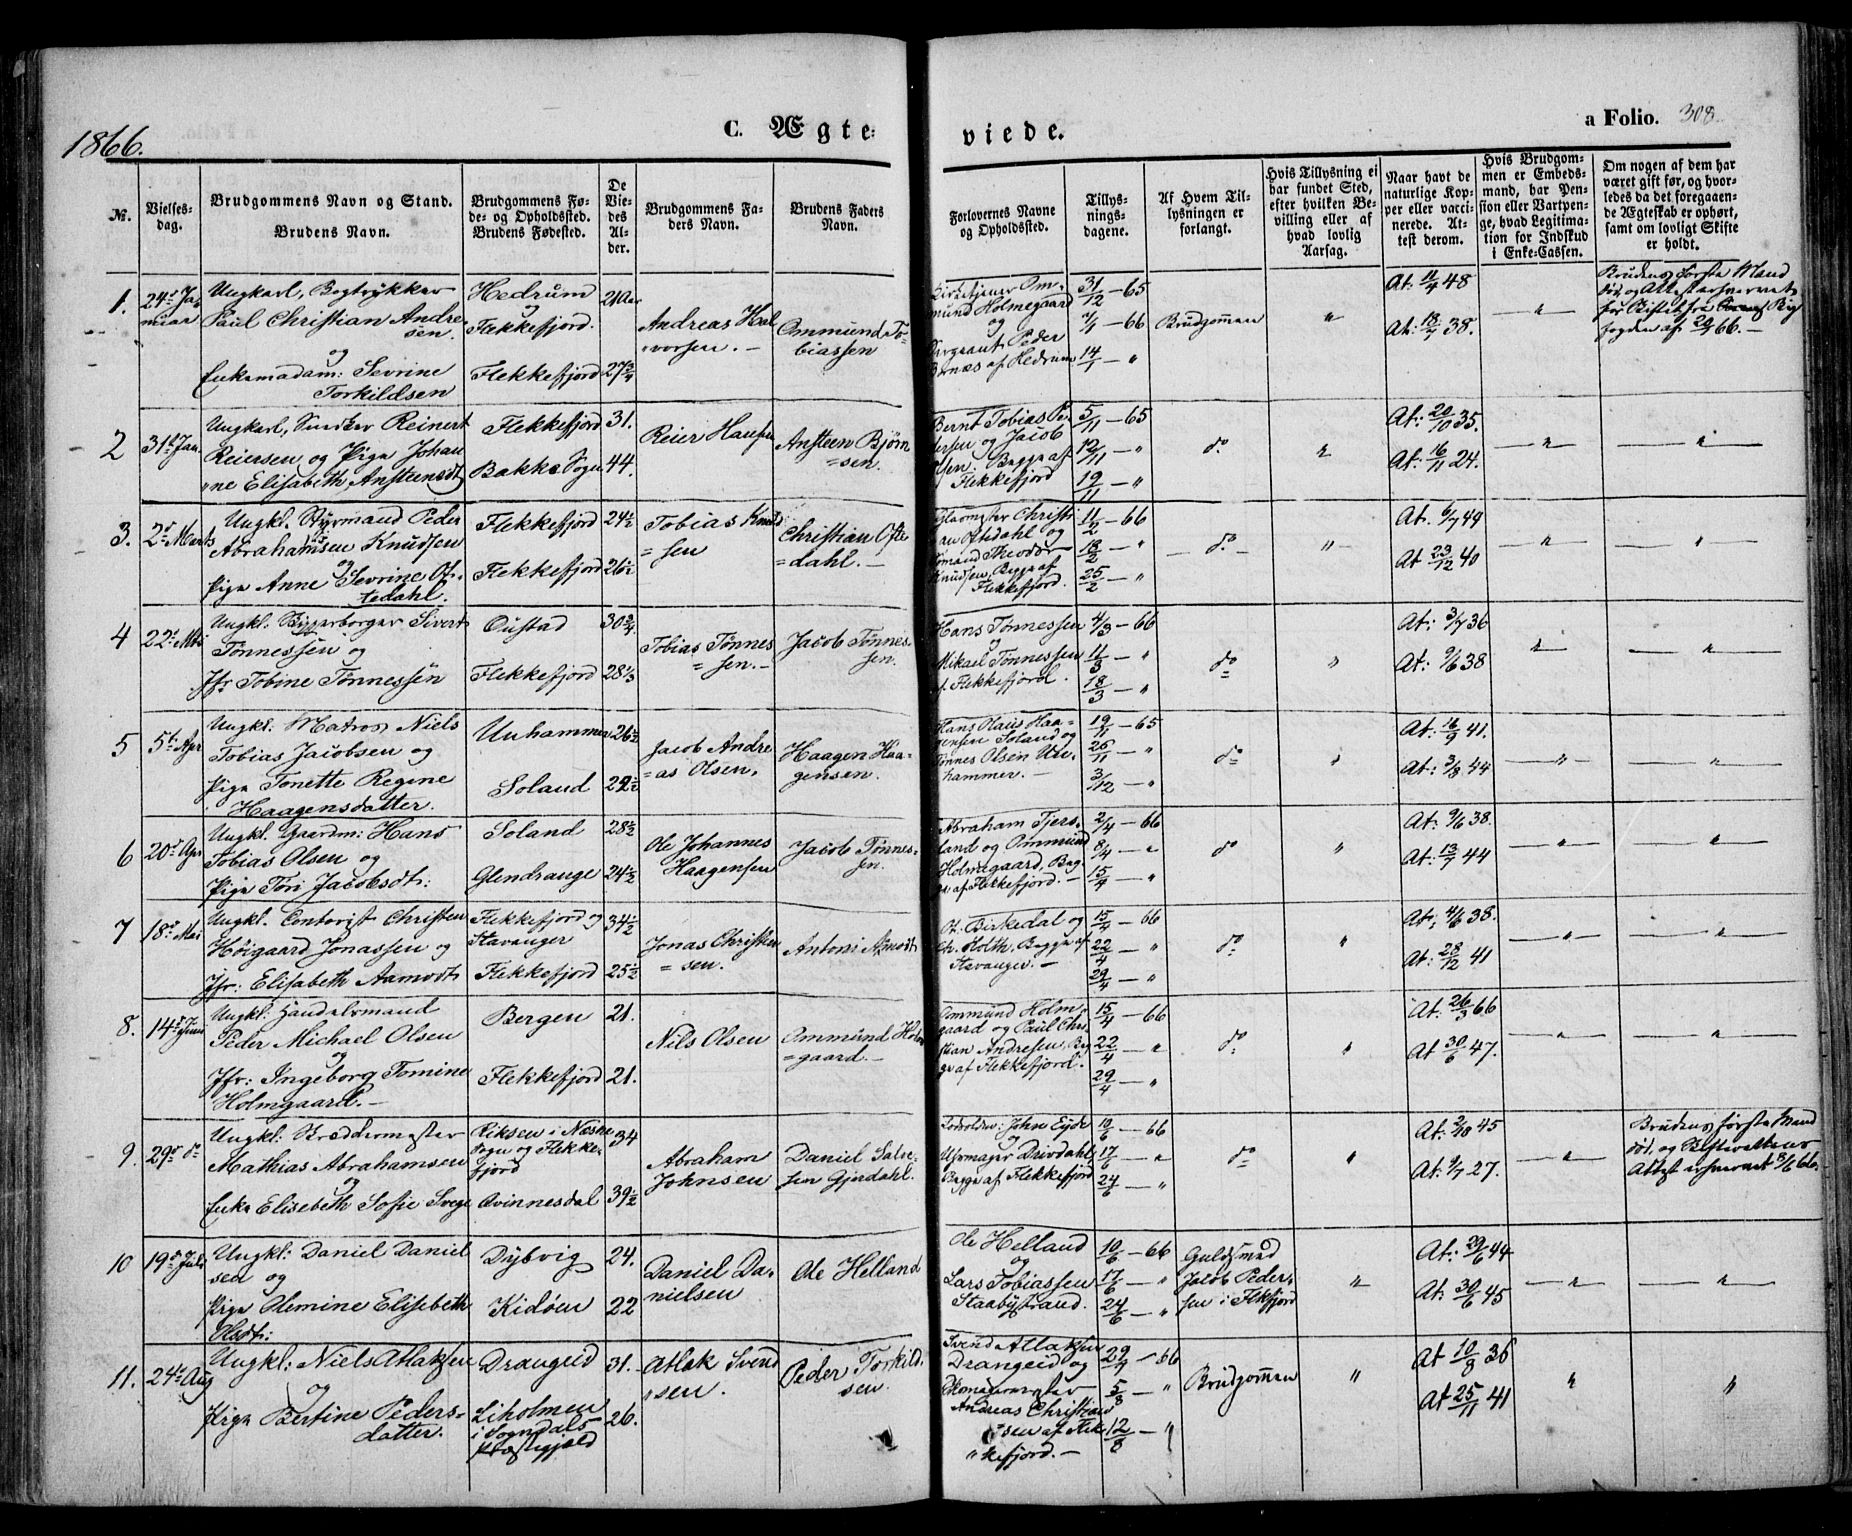 1866.
C. Ægte-
viede.
a Folio. 308
No.
Vielses-
dag.
Brudgommens Navn og Stand.
Brudens Navn.
Brudgommens Fø-
de- og Opholdsted.
Brudens Fødested.
De
Vie-
des
Al-
der.
Brudgommens Fa-
ders Navn.
Brudens Faders
Navn.
Forlovernes Navne
og Opholdsted.
Tillys-
nings-
dagene.
Af Hvem Til-
lysningen er
forlangt.
Hvis Tillysning ei
har fundet Sted,
efter hvilken Be-
villing eller af
hvad lovlig
Aarsag.
Naar havt de
naturlige Kop-
per eller vacci-
nerede. At-
test derom.
Hvis Brudgom-
men er Embeds-
mand, har Pen-
sion eller Vartpen-
ge, hvad Legitima-
tion for Indskud
i Enke-Cassen.
Om nogen af dem har
været gift før, og hvor-
ledes da det foregaaen-
de Ægteskab er ophørt,
samt om lovligt Skifte
er holdt.
1. 24de Ja-
nuar
Ungkarl, Bogtrykker
Paul Christian Andre-
sen.
og
Enkemadam: Sevrine
Torkildsen
Hedrum
og
Flekkefjord.
Flekkefjord
21 Aar
27 3/4
Andreas Hal-
vorsen. —
Ommund To-
biassen
Ommund Holmegaard
og
Sergeant Peder
af Hedrum
31/12 — 65
7/1 — 66
14/1 — "
Brudgommen
"
At. 11/4 48
At: 18/7 38.
— " —
Brudens første Mand
død, og Attest erhvervet
for Skiftet fra By
fogden af 20/1 66. —
2 31te Jan.
Ungkarl, Snedker Reinert
Reiersen og Pige Johan
"ne Elisabeth Ansteensdt
Flekkefjord
Bakke Sogn
31.
44.
Reier Hansen
Ansteen Bjørn
=sen.
Bernt Tobias Pe-
dersen og Jacob
Olsen. Begge af
Flekkefjord
5/11 — 65
12/11 — "
19/11 — "
do.
"
At: 20/10 35.
At: 16/11 24.
— " —
— " —
3. 2de Marts
Ungkl. Styrmand Peder
Abrahamsen Knudsen
og
Pige Anne Sevrine Of-
tedahl.
Flekkefjord
Flekkefjord
24 1/2
26 1/2
Tobias Knud
=sen
Christian Ofte
=dahl. —
Christi
an Oftedahl og
Sømand Theodor
Knudsen, Begge af
Flekkefjord.
11/2 — 66
18/2 — "
25/2 — "
— do. —
— " —
At. 6/7 49
At 23/12 40
— " —
— " —
4 22de Mai
Ungkl: Byggerborger Sivert
Tønnessen og
Jfr Tobine Tønnessen
Oustad
Flekkefjord
30 3/4
28 1/3
Tobias Tønnes
=sen. —
Jacob Tønnes-
sen.
Hans Tønnessen
og
Mikael Tønnessen
af Flekkefjord.
4/3 — 66
11/3 — "
18/3 — "
do
"
At: 3/7 36
At: 9/6 38
— " —
— " —
5 5te Apr
Ungkl: Matros Niels
Tobias Jacobsen og
Pige Tonette Regine
Haagensdatter.
Unhammer
Soland
26 1/2
29 1/2
Jacob Andre
=as Olsen.
Haagen Haa-
gensen.
Hans Olaus Haa-
gensen Soland og
Tønnes Olsen Un-
hammer. —
19/11 — 65
26/11 — "
3/12 — "
do
"
At: 16/9 41.
At: 3/8 44
— " —
— " —
6 20de Apr
Ungkl. Gaardm: Hans
Tobias Olsen og
Pige Tori Jacobsdt:
Soland
Glendrange
28 1/2
24 1/2
Ole Johannes
Haagensen
Jacob Tønnes-
sen.
Abraham Tjers-
land og Ommund
Holmegaard, Beg-
ge af Flekkefjord. —
2/4 — 66
8/4 — "
15/4 — "
do
"
At: 9/6 38.
At: 13/7 44
— " —
— " —
7 18de Mai
Ungkl. Contorist Christen
Høigaard Jonassen og
Jfr: Elisabeth Aamodt
Flekkefjord og
Stavanger
Flekkefjord
34 1/2
25 1/2
Jonas Christen
=sen.
Antoni Aamodt
Ol. Birkedal og
Ch. Holth, Begge af
Stavanger. —
15/4 — 66
22/4 — "
29/4 — "
do
"
At: 4/6 38.
At: 28/12 41
— " —
— " —
8. 14de Juni
Ungkl: Handelsmand
Peder Michael Olsen
og
Jfr: Ingeborg Tomine
Holmgaard. —
Bergen
Flekkefjord
21.
21.
Nils Olsen
Ommund Holm
=gaard. —
Ommund Holm-
gaard og Paul Chri
stian Andresen, Beg
ge af Flekkefjord.
15/4 — 66
22/4 — "
29/4 — "
do
"
At: 26/3 66
At 30/6 47.
— " —
— " —
9. 29de do
Ungkl: Skreddermester
Mathias Abrahamsen
og
Enke Elisebeth Sofie Svege
Eiksen i Næsne
Sogn og Flekke-
fjord
Qvinnesdal
34
39 1/2
Abraham
Johnsen
Daniel Salve-
sen Gjerdahl.
John Eyde
og
Uhrmager Drivdahl
Begge af Flekkefjord
10/6 — 66
17/6 — "
24/6 — "
do
"
At: 2/10 45
At: 9/7 27.
— " —
Brudens første Mand
død, og Skifterettens
Attest erhvervet 8/6 66.
10 19de Juli
Ungkl: Daniel Daniel
sen og
Pige Olemine Elisebeth
Olsdt:
Dybvig
Kidøen
24.
22
Daniel Da-
nielsen
Ole Helland
Ole Helland
og
Lars Tobiassen
Staabystrand.
10/6 — 66
17/6 — "
24/6 — "
Guldsmed
Jacob Peder-
sen i Flekfjord
"
At: 29/6 44
At: 30/6 45
— " —
— " —
11. 24de Aug
Ungkl: Niels Atlaksen
og
Pige Bertine Peders-
datter.
Drangeid
Liholmen
i Sogndals
Præstegjæld
31.
26.
Atlak Svend
"sen.
Peder Torkild-
sen.
Svend Atlaksen
Drangeid og
Andreas Christian
=sen af Flek
"kefjord. —
29/7 — 66
5/8 — "
12/8 — "
Brudgommen
"
At 10/8 36
At 25/11 41
"
"